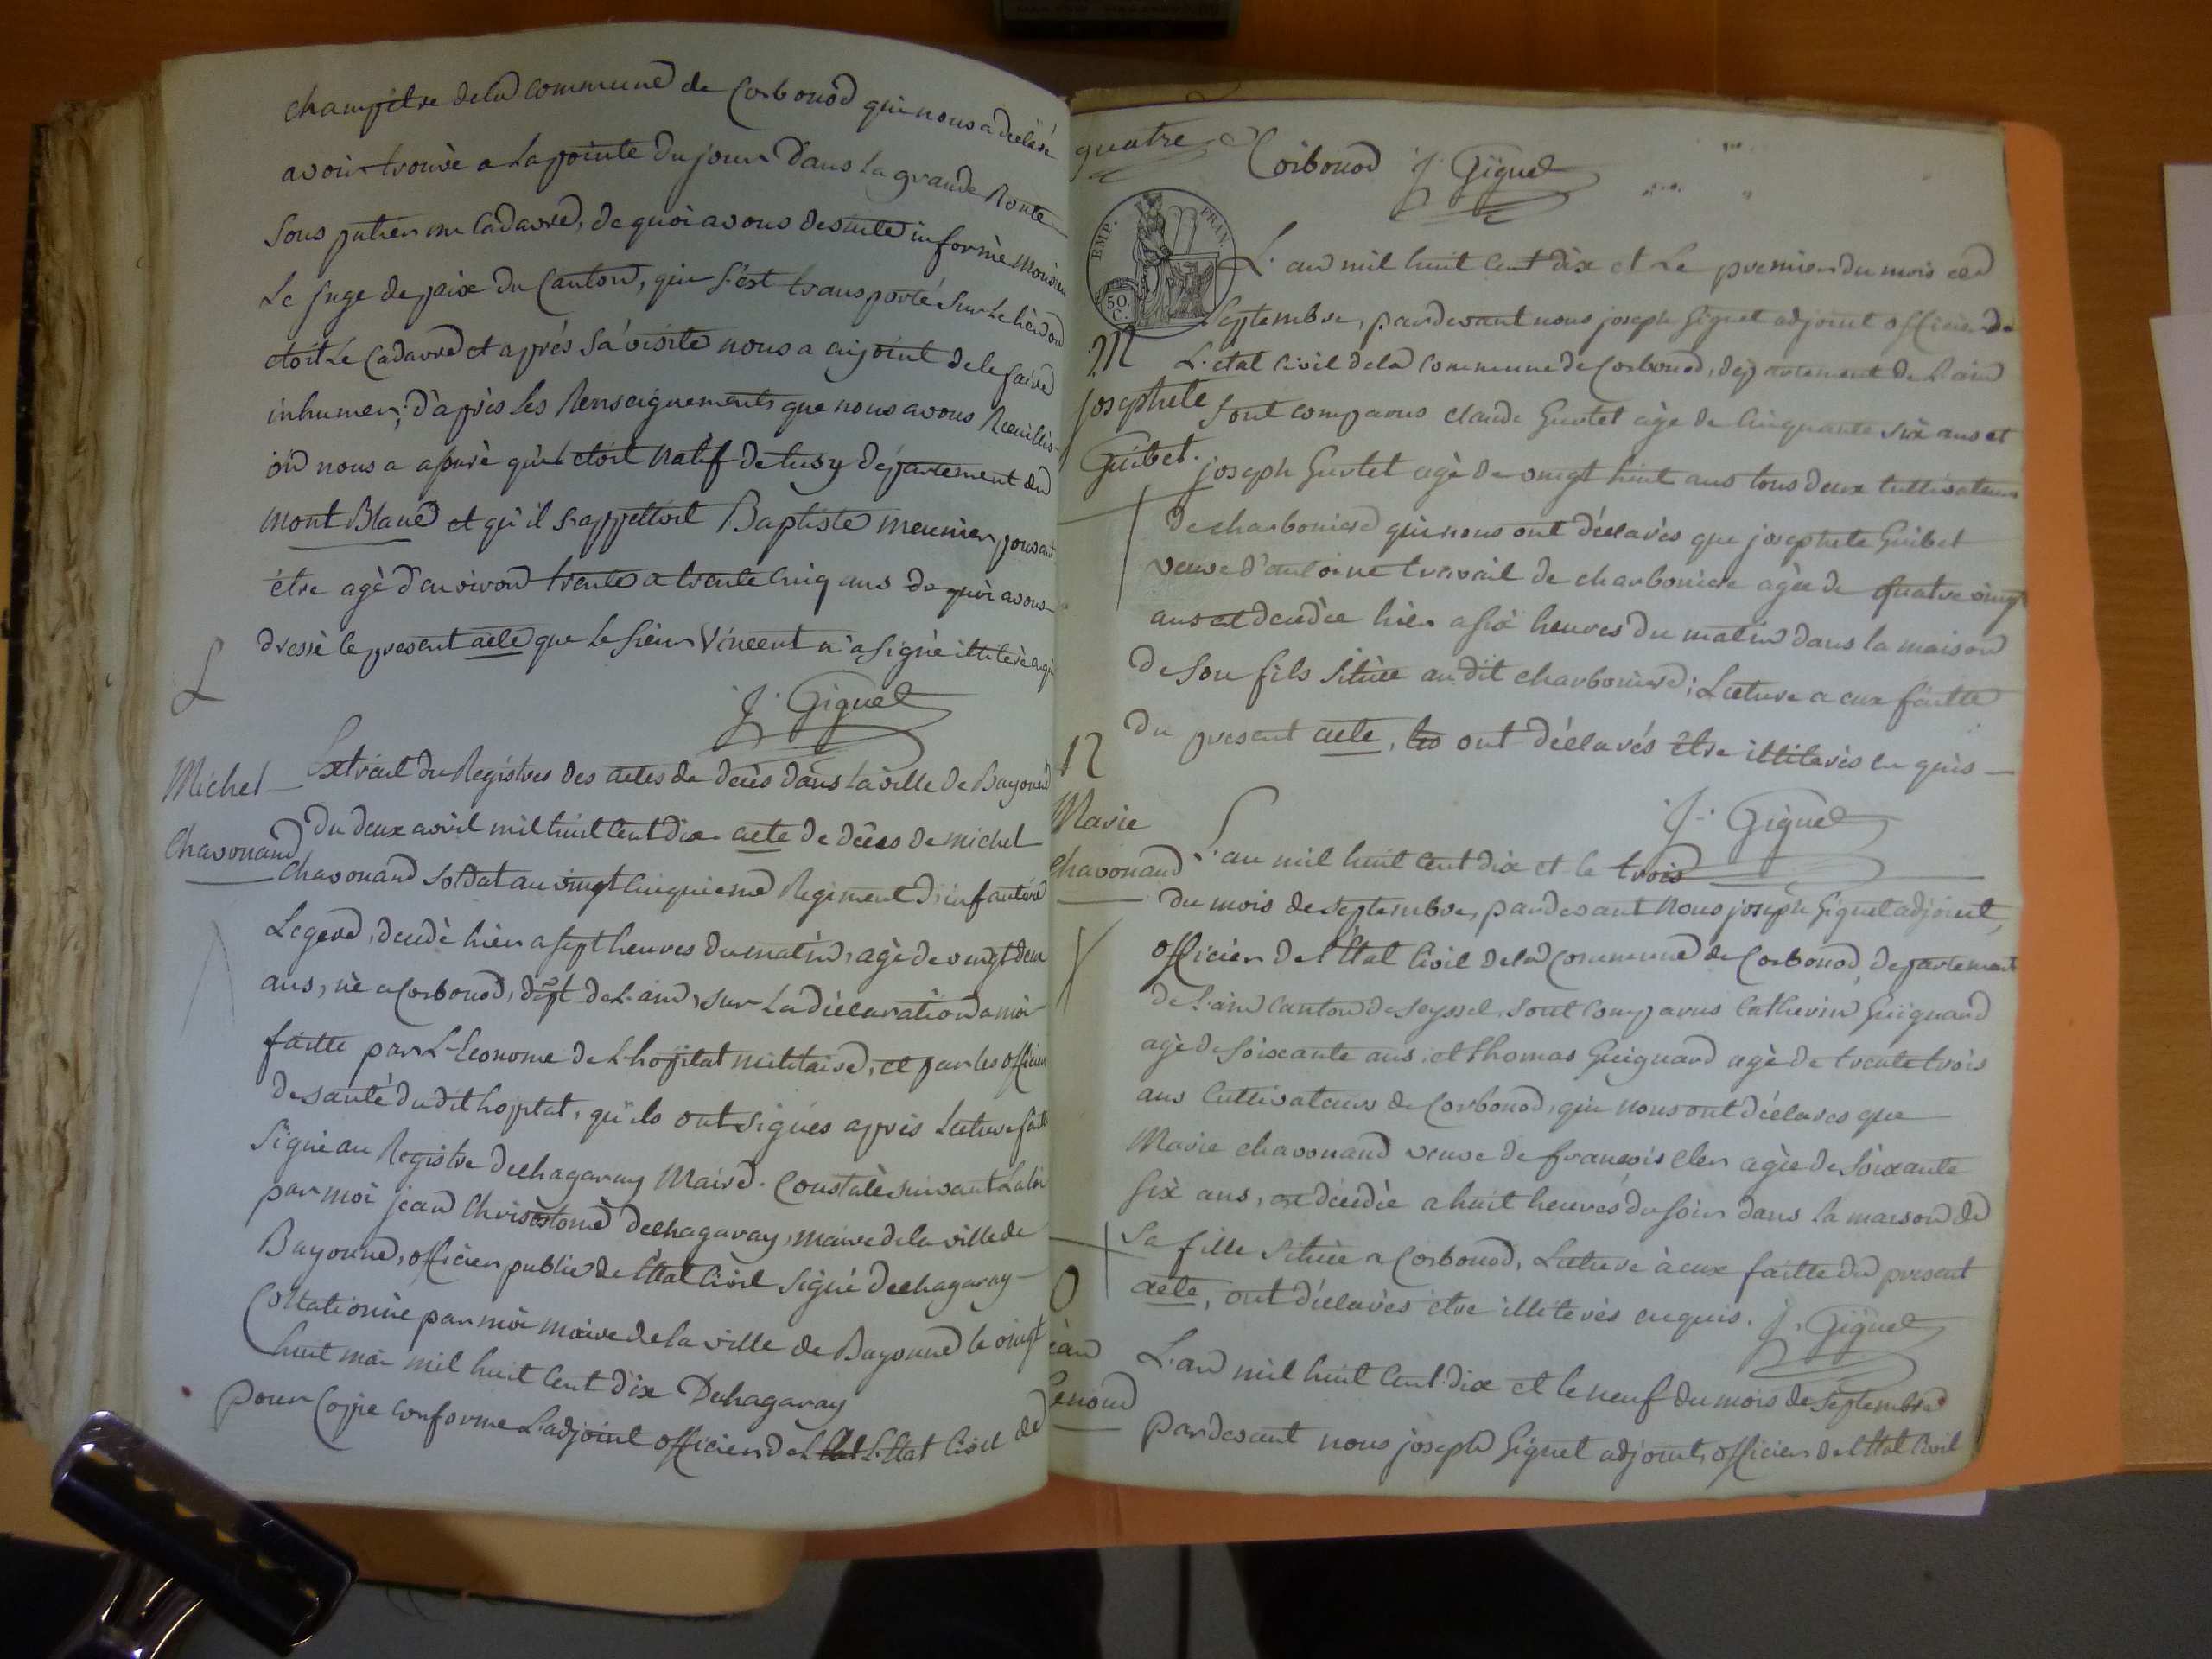 champêtre dela commune de Corbonod qui nous a declaré
avoir trouvé a la pointe du jour dans la grande Route
sous un cadavre, de quoi avons desuite informé
Le juge de paix du Canton, qui s'est transporté sur le lieu où
etoit Le Cadavre et aprés sa visite nous a enjoint de le faire
inhumer; d'après les Renseignements que nous avons Recuillis
on nous a assuré qu'il etoit natif de departement du
mont Blanc et qu'il s'appelloit Baptiste meunier pouvant
être agé d'environ trente a trente cinq ans de quoi avons
dressé le present acte que le sieur Vincent n'a signé illiteré enquis
J. Giguet
L
Michel
Chavonand
Extrait du Registres des actes de decès dans la ville de Bayonne
du deux avril mil huit cent dix acte de décès de michel
Chavonand soldat au vingt cinquieme Regiment d'infanterie
Legere, decedé hier a sept heures du matin, agé de vingt deux
ans, né a Corbonod, dept de L'ain, sur La déclaration a moi
faitte par L'Econome de L'hopital militaire, et par les officiers
de santé dudit hopital, qu'ils ont signés après Lecture faite
Signé au Registre Dechagaray Maire. Constaté suivant La loi
par moi jean Dechagaray, maire de la ville de
Bayonne, officier public de l'Etat Civil signé Dechagaray
Collationné par moi maire de la ville de Bayonne le vingt
huit mai mil huit Cent dix Dechagaray
Pour Copie conforme L'adjoint officier de L'Etat Civil de
quatre
Corbonod J. Giguet
EMP. FRAN.
50 C.
L'an mil huit Cent dix et Le premier du mois de
Septembre, pardevant nous joseph Giguet adjoint officier de
L'etat Civil dela Commune de Corbonod, departement de L'ain
M
josephete
Guibet.
Sont comparus claude Gurtet agé de Cinquante six ans et
joseph Gurtet agé de vingt huit ans tous deux Cultivateurs
de charboniere qui nous ont déclarés que josephete Guibet
veuve d'antoine travail de charboniere agée de quatre vingt
ans et decedée hier a six heures du matin dans la maison
de son fils située au dit charboniere; Lecture a eux faitte
du present acte, ont déclarés être illiterés en quis
J. Giguet
N
Marie
Chavonand
L'an mil huit Cent dix et le trois
du mois de septembre, pardevant Nous joseph Giguet adjoint,
officier de l'Etat Civil dela Commune de Corbonod, departement
de L'ain Canton de Seyssel, sont comparus Catherin Guignard
agé de soixante ans, et thomas Guignard agé de trente trois
ans Cultivateurs de Corbonod, qui nous ont déclarés que
Marie chavonand veuve de françois cler agée de soixante
six ans, decedée a huit heures du soir dans la maison de
sa fille située a Corbonod, Lecture à eux faitte du present
acte, ont déclarés etre illiterés enquis. J. Giguet
O
L'an mil huit Cent dix et le neuf du mois de septembre
Pardevant nous joseph Giguet adjoint, officier de l'Etat Civil